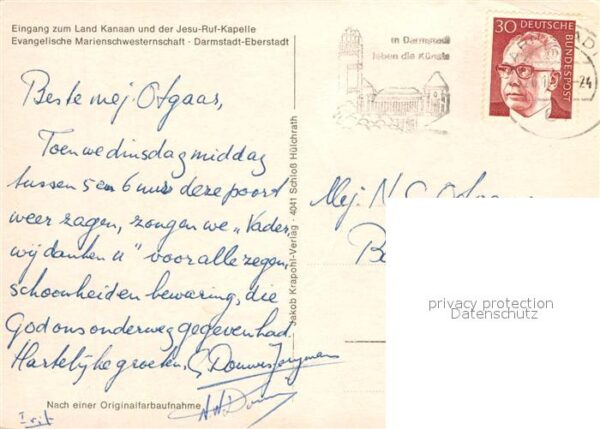 Eingang zum Land Kanaan und der Jesu-Ruf-Kapelle
Evangelische Marienschwesternschaft · Darmstadt-Eberstadt
in Darmstadt
leben die Künste
30 DEUTSCHE BUNDESPOST
24
Beste mej. Otgaar,
Toen we dinsdag middag
tussen 5 en 6 uur deze poort
weer zagen, zongen we „Vader,
wij danken u" voor alle zegen,
schoonheid en bewaring, die
God ons onderweg gegeven had.
Hartelijke groeten,
Mej. N. C. Otgaar
Be
Jakob Krapohl-Verlag · 4041 Schloß Hülchrath
privacy protection
Datenschutz
Nach einer Originalfarbaufnahme